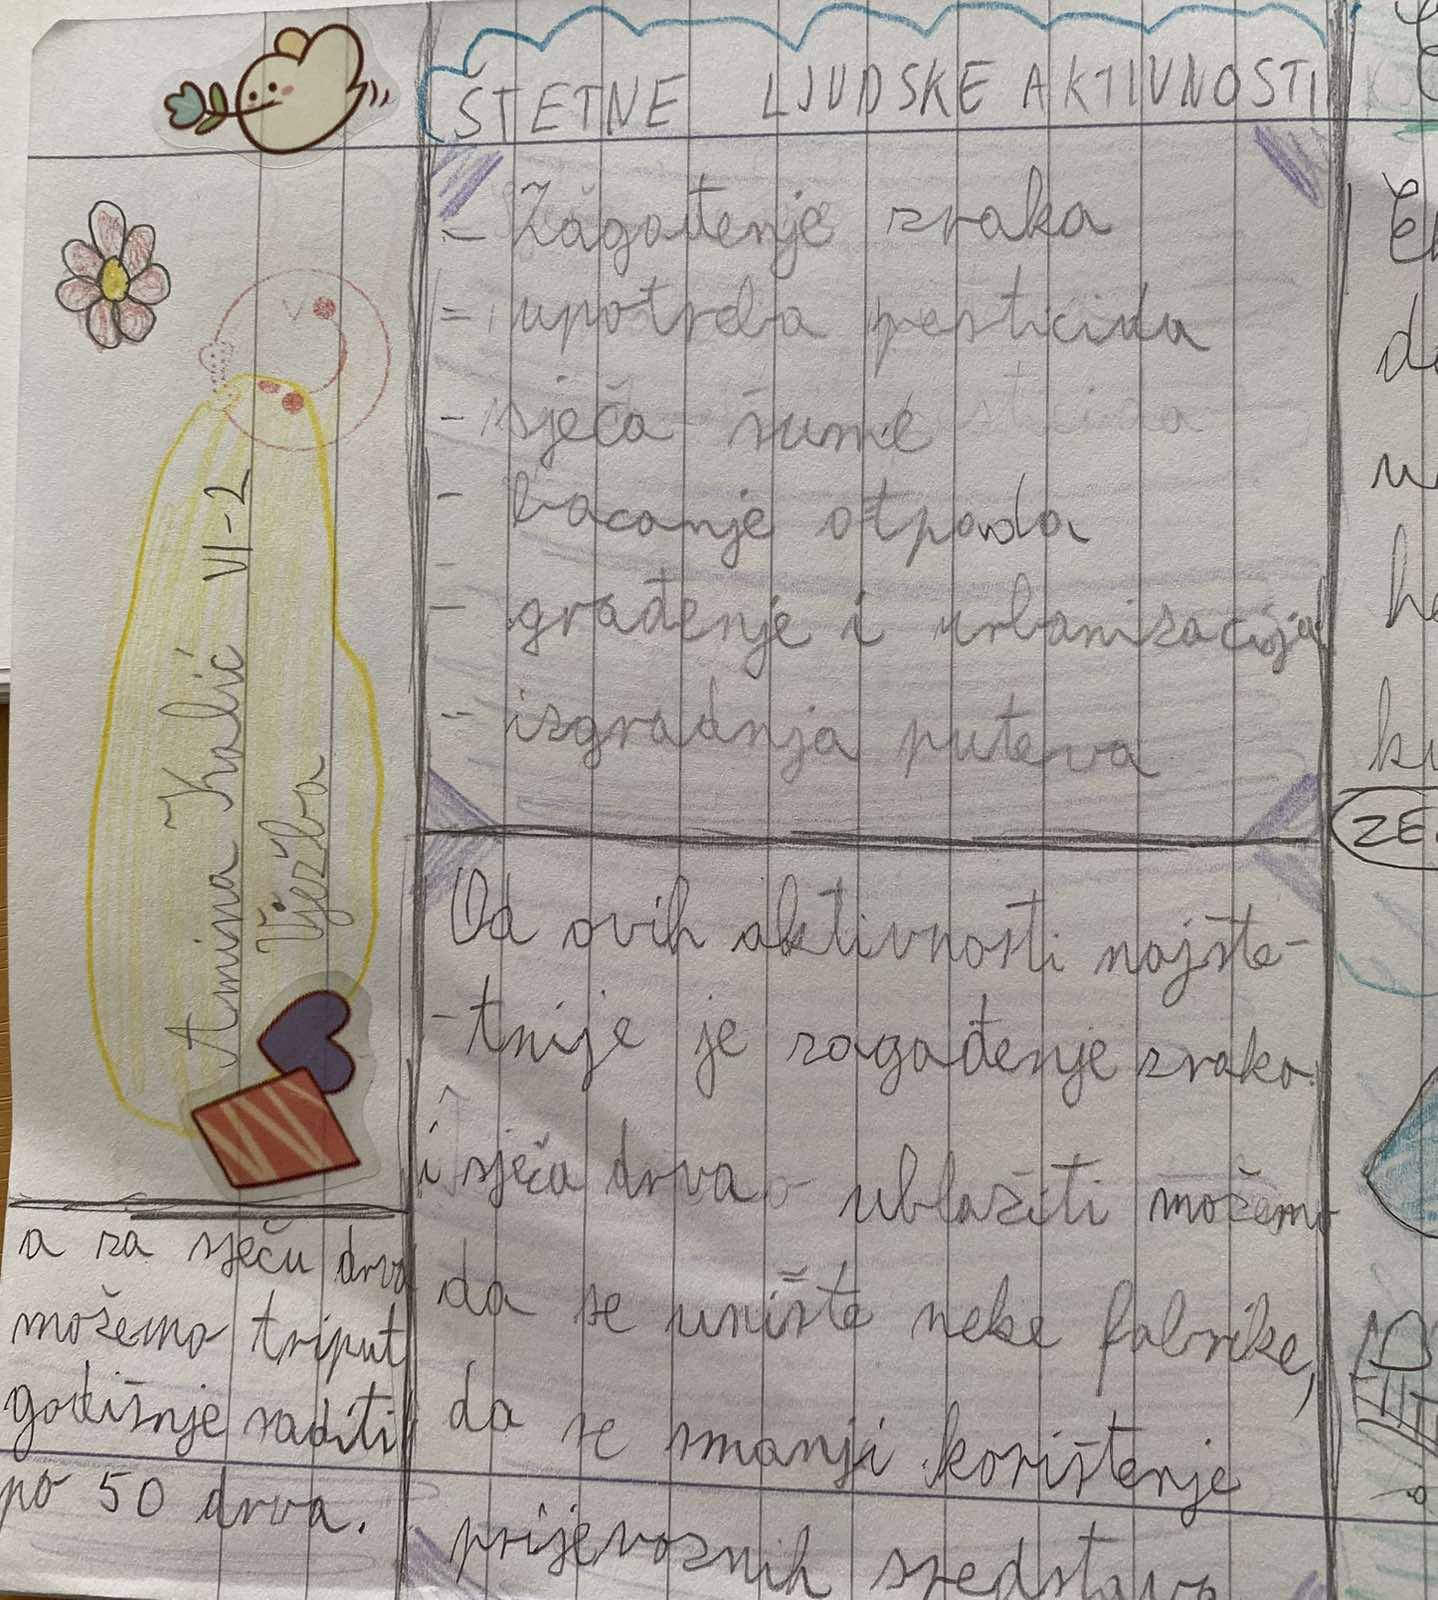 STETNE LJUDSKE AKTIVNOSTI
- Zagađenje zraka
- upotreba pesticida
- sječa šume
- bacanje otpada
- građenje i urbanizacija
- izgradnja puteva
Od ovih aktivnosti najšte-
-tnije je zagađenje zraka
i sječa drva ublažiti možemo
da se unište neke fabrike,
da se smanji korištenje
prijevoznih sredstava
a za sječu drva
možemo triput
godišnje saditi
po 50 drva.
Amina Kulić VI-2
Vježba